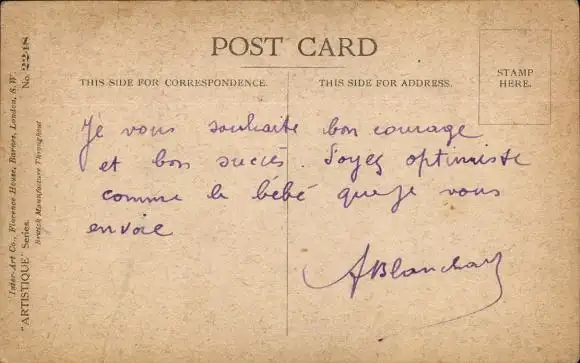 POST CARD
THIS SIDE FOR CORRESPONDENCE.
THIS SIDE FOR ADDRESS.
STAMP
HERE.
Je vous souhaite bon courage
et bon succès. Soyez optimiste
comme le bébé que je vous
envoie
ABlanchard
Inter-Art Co., Florence House, Barnes, London, S.W.
"ARTISTIQUE" Series. No. 2218
British Manufacture Throughout